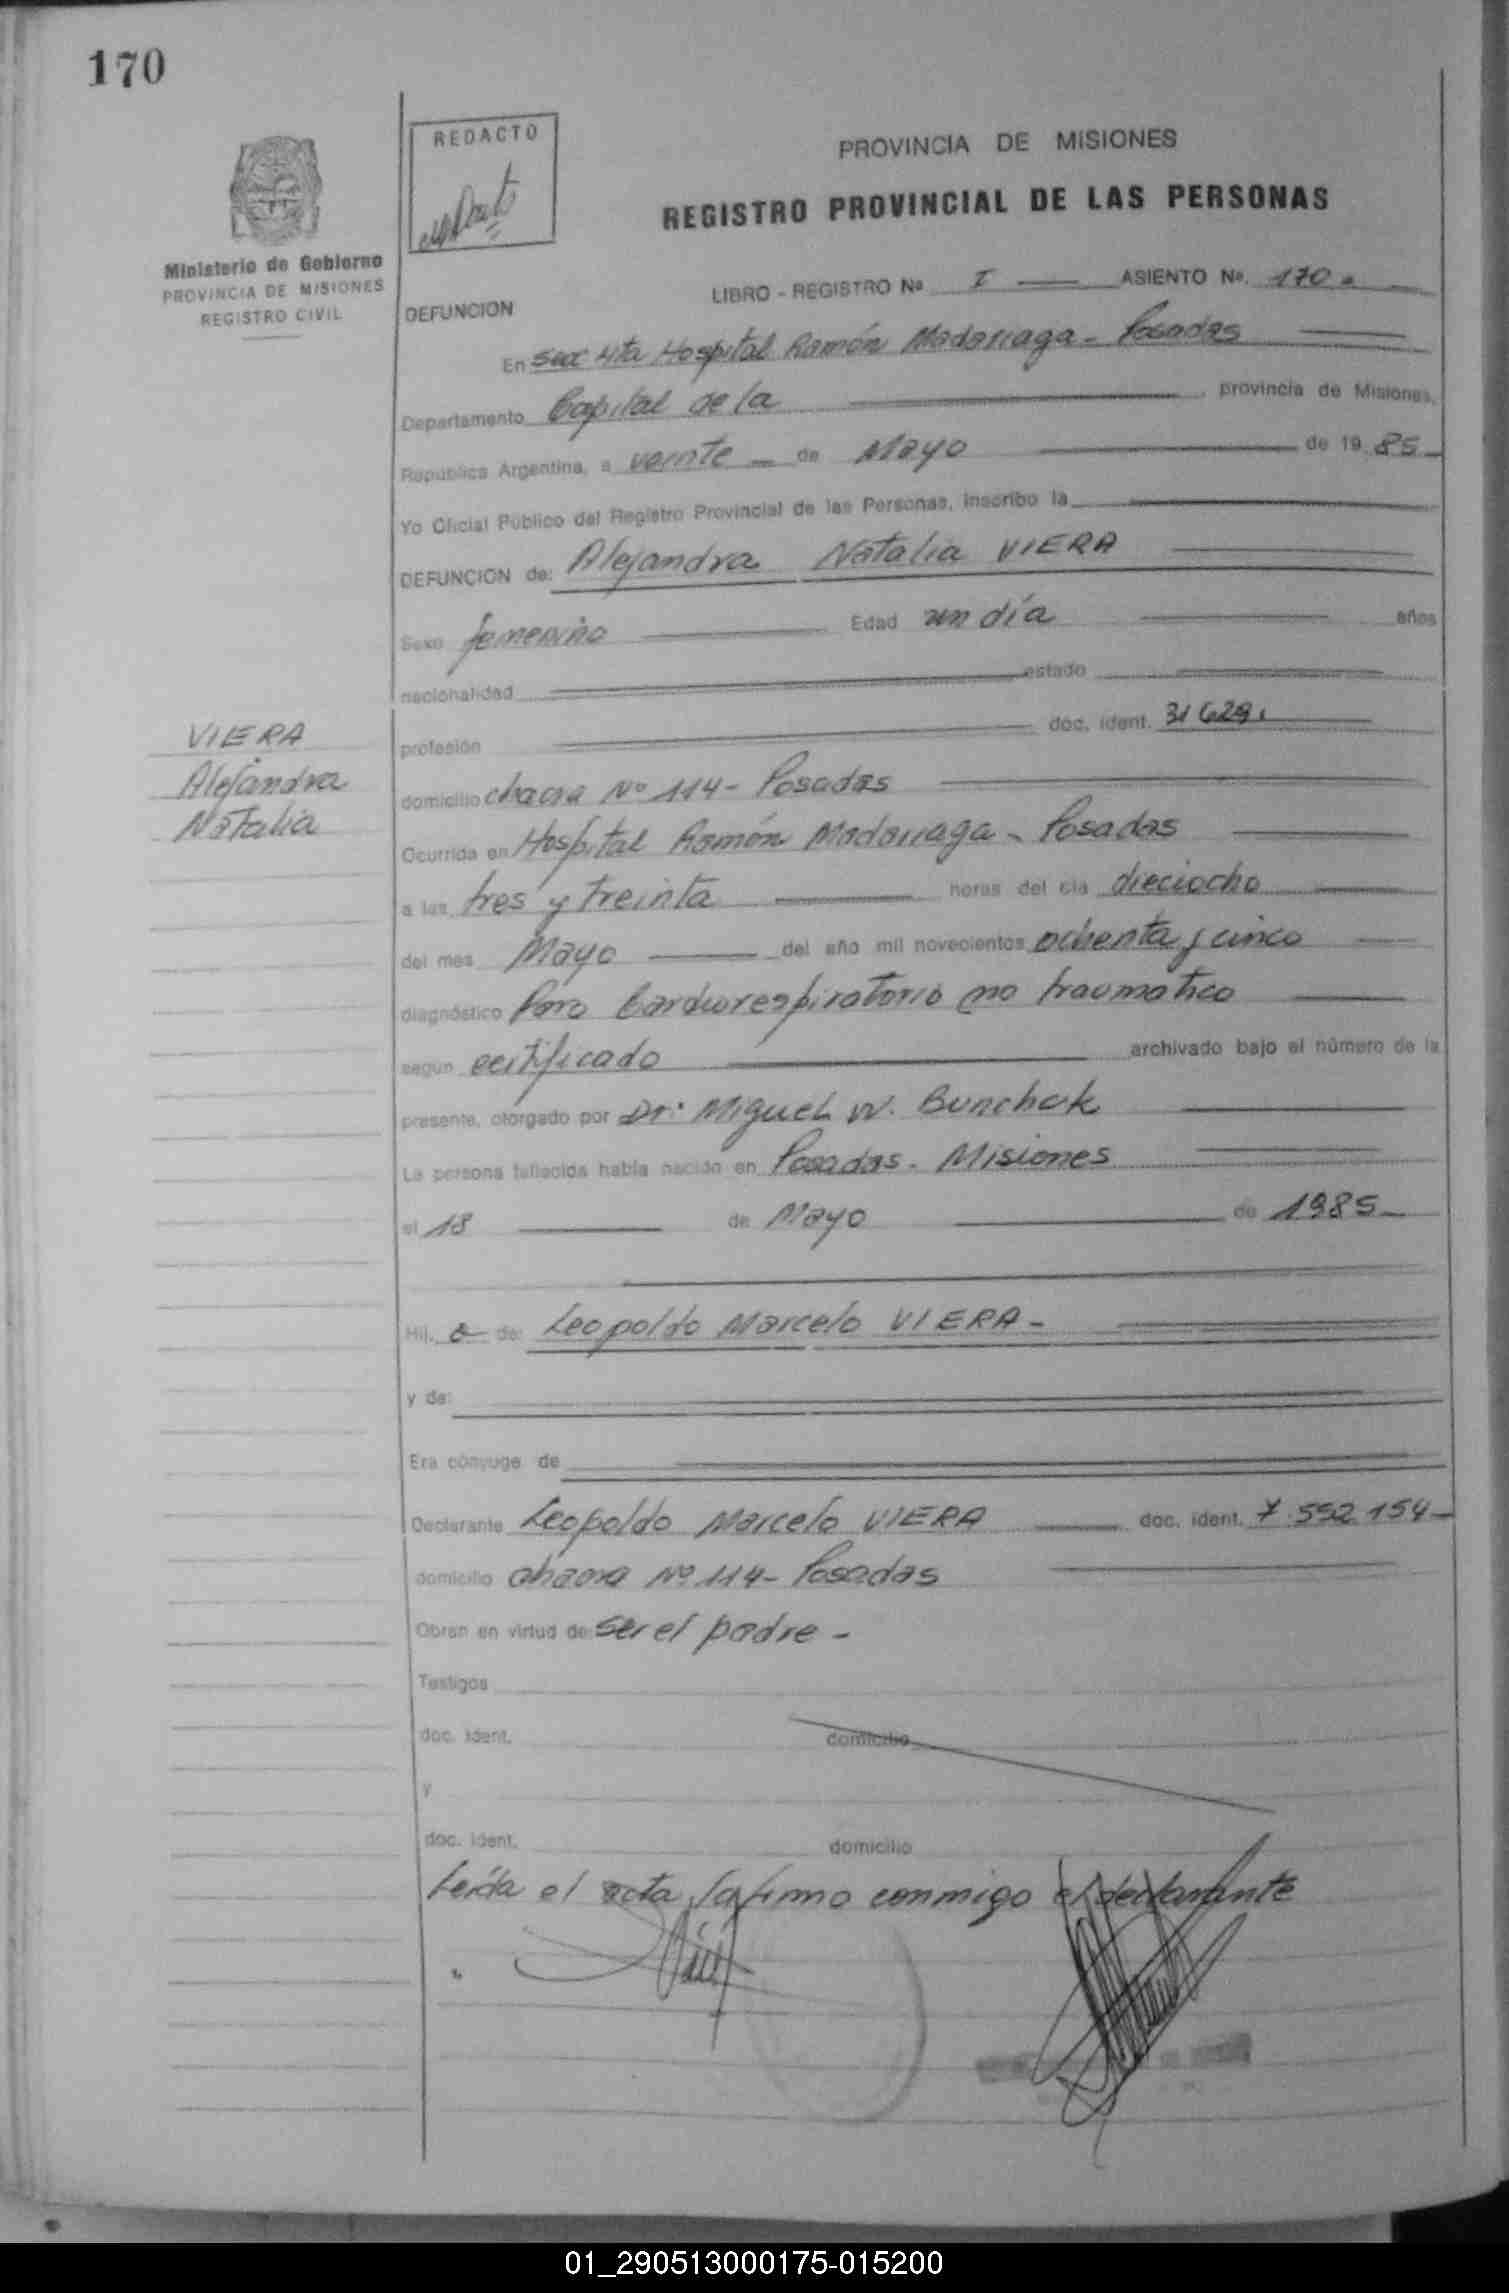 170
REDACTO
PROVINCIA DE MISIONES
REGISTRO PROVINCIAL DE LAS PERSONAS
Ministerio de Gobierno
PROVINCIA DE MISIONES
REGISTRO CIVIL
LIBRO - REGISTRO Nº I ASIENTO Nº. 170
DEFUNCION
En Secc 4ta Hospital Ramón Madariaga - Posadas
Departamento Capital de la provincia de Misiones,
República Argentina, a veinte de Mayo de 19 85
Yo Oficial Público del Registro Provincial de las Personas, inscribo la
DEFUNCION de: Alejandra Natalia VIERA
Sexo femenino Edad un día años
nacionalidad estado
VIERA
Alejandra
Natalia
profesión doc. ident. 31629.
domicilio chacra Nº 114 - Posadas
Ocurrida en Hospital Ramón Madariaga - Posadas
a las tres y treinta horas del día dieciocho
del mes Mayo del año mil novecientos ochenta y cinco
diagnóstico Paro Cardiorespiratorio no traumatico
según certificado archivado bajo el número de la
presente, otorgado por Dr. Miguel W. Bunchak
La persona fallecida había nacido en Posadas - Misiones
el 18 de Mayo de 1985
Hij a de: Leopoldo Marcelo VIERA -
y de:
Era cónyuge de
Declarante Leopoldo Marcelo VIERA doc. ident. 7.552.154
domicilio chacra Nº 114 - Posadas
Obran en virtud de: ser el padre -
Testigos
doc. ident. domicilio
y
doc. ident. domicilio
Leída el acta, la firma conmigo el declarante
01_290513000175-015200